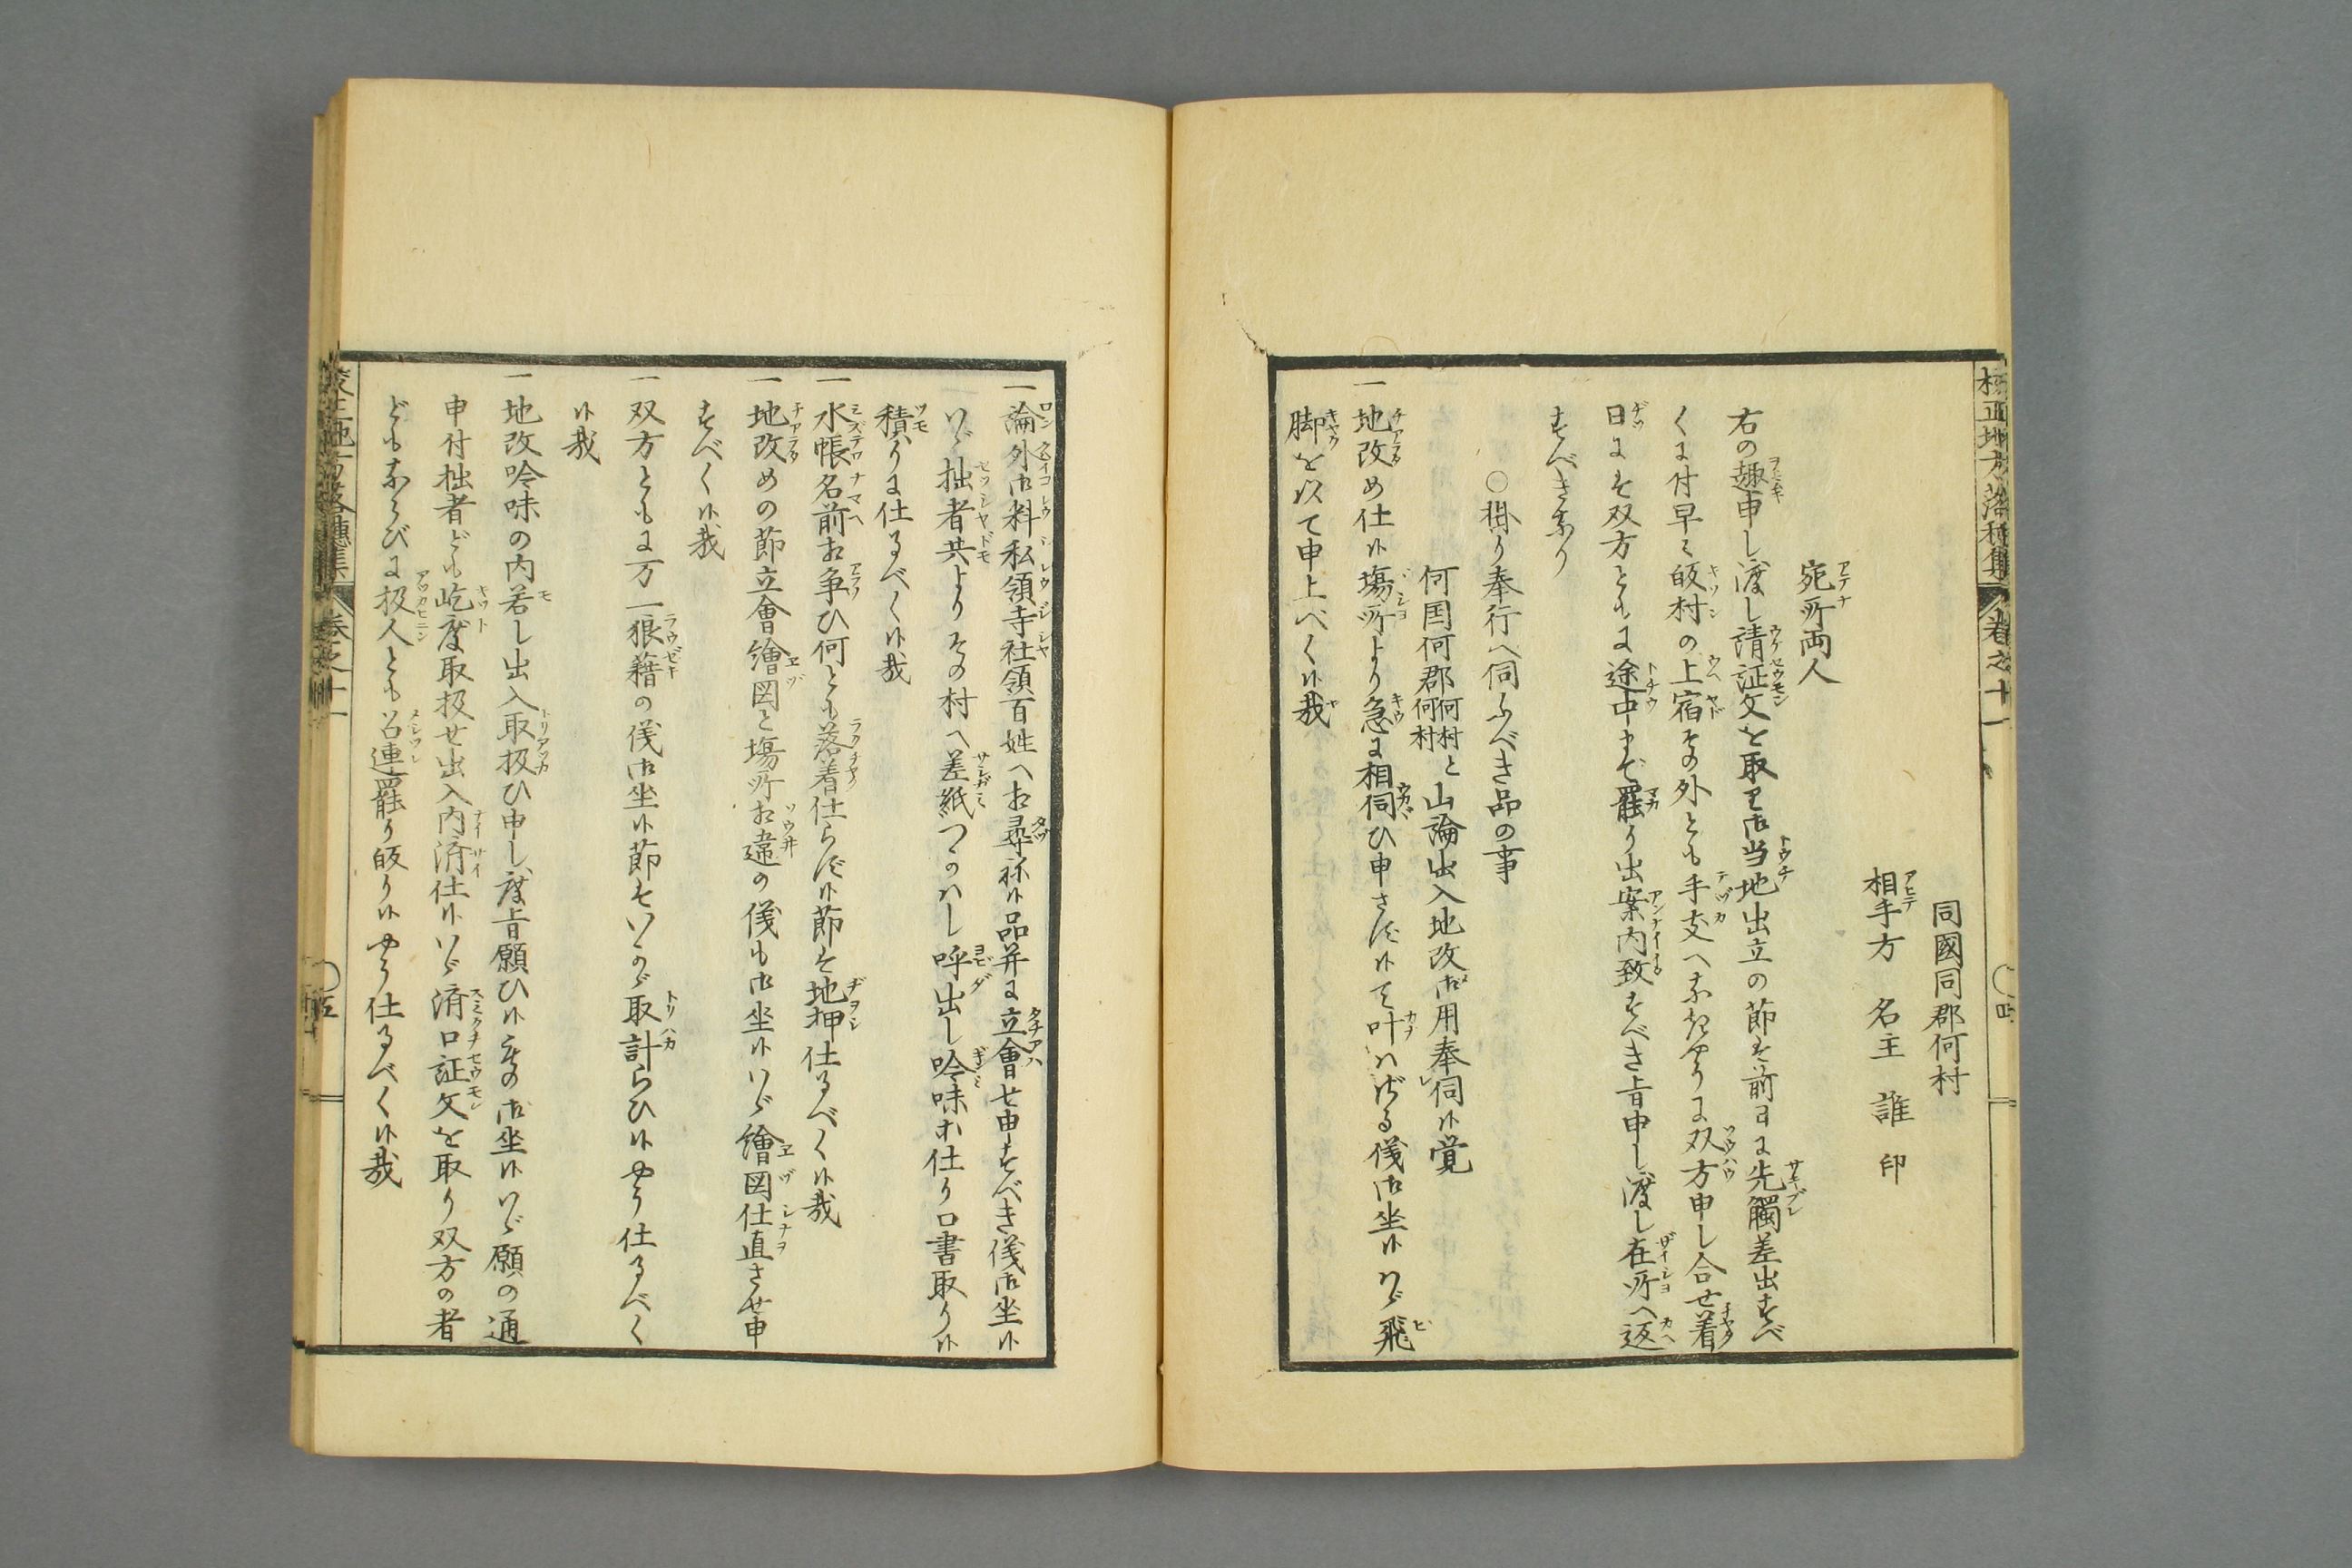 校正地方落穂集 巻之十一 〇四
同國同郡何村
相手方 名主 誰 印
宛所両人
右の趣申し渡し請証文を取り御当地出立の節は前日に先觸差出すべ
くに付早々皈村の上宿その外とも手支へなきやうに双方申し合せ着
日には双方ともに途中まで罷り出案内致すべき旨申し渡し在所へ返
すべきなり
〇掛り奉行へ伺ふべき品の事
何国何郡何村何村と山論出入地改御用奉伺候覚
一地改め仕候塲所より急に相伺ひ申さず候て叶はざる儀御坐候はゞ飛
脚を以て申上べく候哉
一論外御料私領寺社領百姓へお尋ね候品并に立會せ申すべき儀御坐候
はゞ拙者共よりその村へ差紙つかはし呼出し吟味等仕り口書取り候
積りに仕るべく候哉
一水帳名前お争ひ何とも落着仕らず候節は地押仕るべく候哉
一地改めの節立會繪図と塲所お違の儀も御坐候はゞ繪図仕直させ申
すべく候哉
一双方ともに万一狼藉の儀御坐候節はいかゞ取計らひ候やう仕るべく
候哉
一地改吟味の内若し出入取扱ひ申し度旨願ひ候もの御坐候はゞ願の通
申付拙者ども屹度取扱せ出入内済仕候はゞ済口証文を取り双方の者
どもならびに扱人とも召連罷り皈り候やう仕るべく候哉
校正地方落穂集 巻之十一 〇五